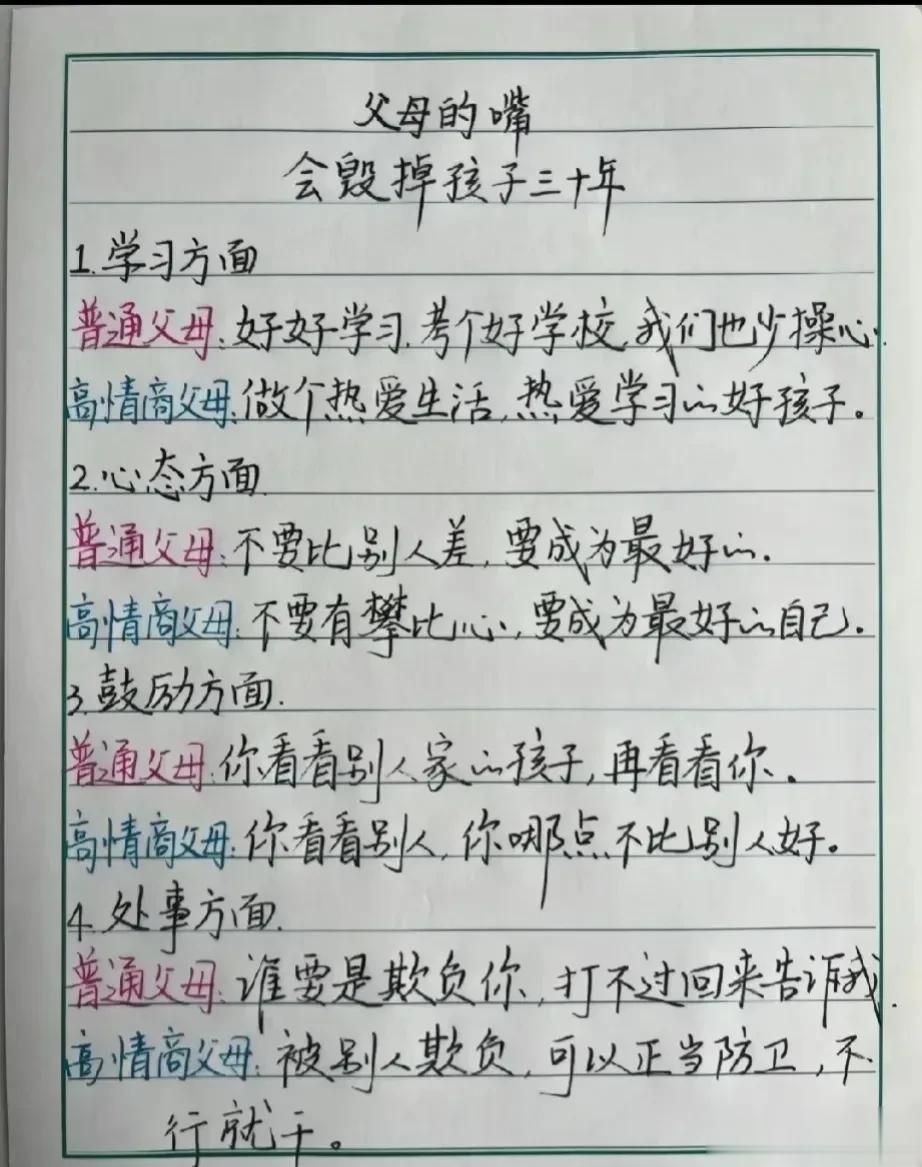 父母的嘴
会毁掉孩子三十年
1.学习方面
普通父母:好好学习,考个好学校,我们也少操心.
高情商父母:做个热爱生活,热爱学习的好孩子。
2.心态方面.
普通父母:不要比别人差,要成为最好的.
高情商父母:不要有攀比心,要成为最好的自己.
3.鼓励方面.
普通父母:你看看别人家的孩子,再看看你.
高情商父母:你看看别人,你哪点不比别人好。
4.处事方面.
普通父母:谁要是欺负你,打不过回来告诉我.
高情商父母:被别人欺负,可以正当防卫,不
行就干。